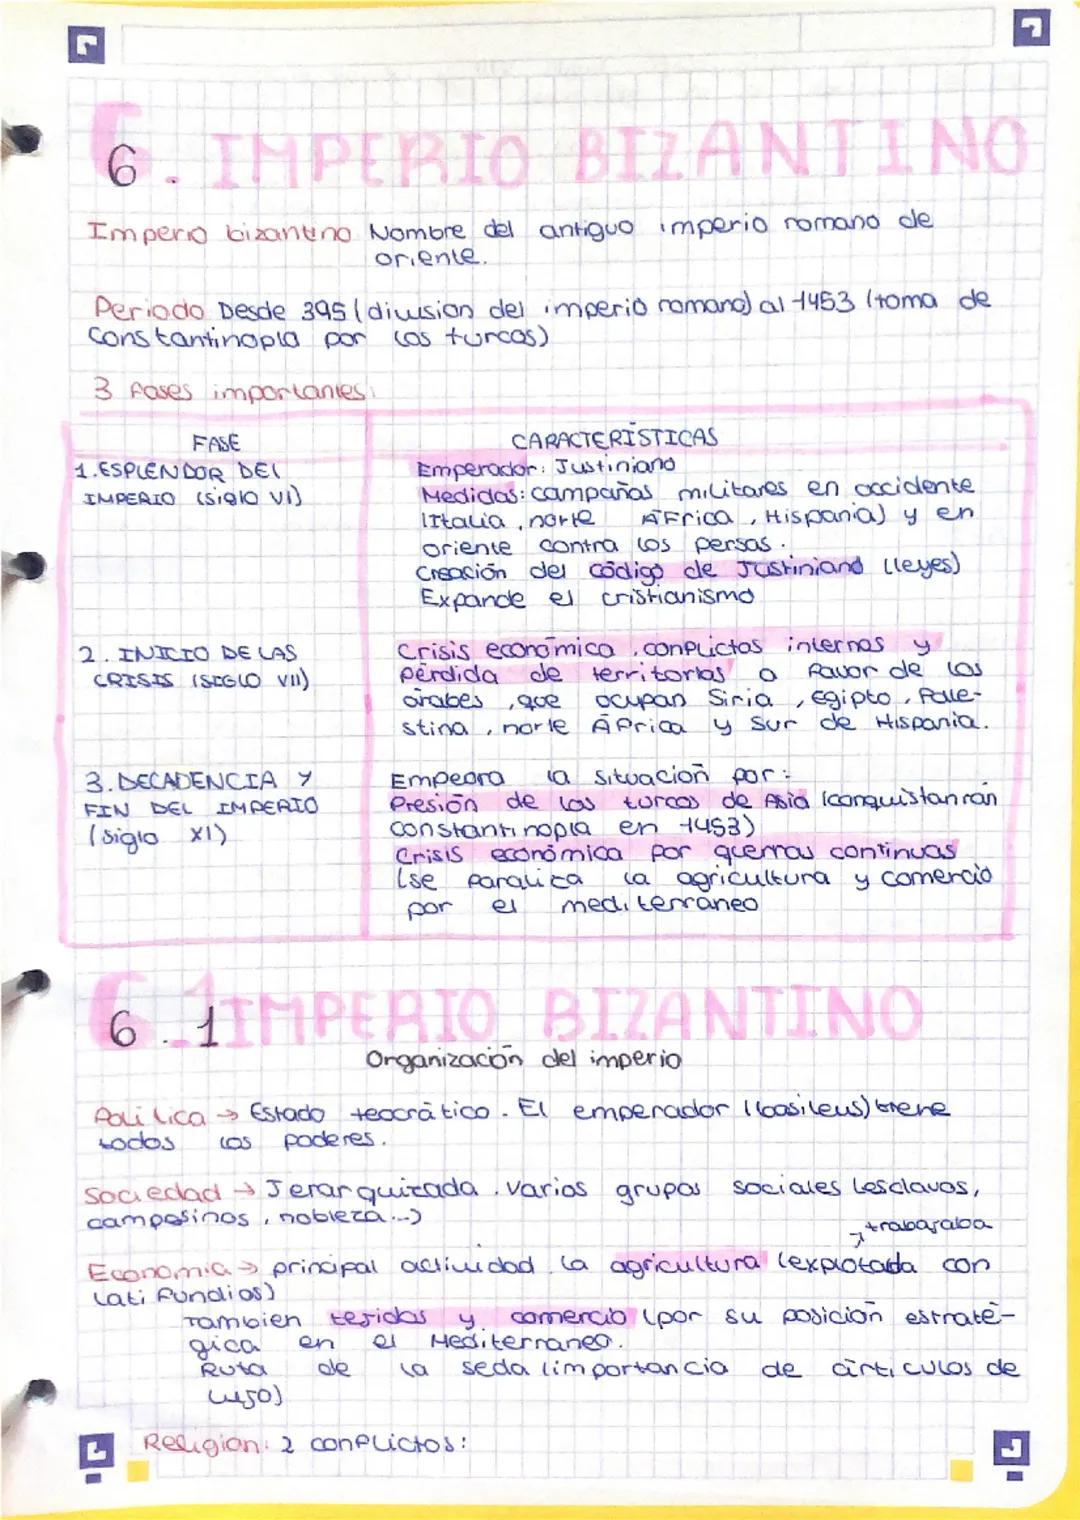 6. IMPERIO BIZANTINO
Imperio bizantino Nombre del antiguo imperio romano de
oriente.
Periodo Desde 395 (division del imperio romano) al 1453 (toma de
Constantinopla por los turcos)
3 fases importantes:
FASE
CARACTERÍSTICAS
1. ESPLENDOR DEL
IMPERIO (siglo VI)
Emperador: Justiniano
Medidas: campañas militares en occidente
(Italia, norte África, Hispania) y en
oriente contra los persas.
Creación del código de Justiniano (leyes)
Expande el cristianismo
2. INICIO DE LAS
CRISIS (SIGLO VII)
Crisis económica, conflictos internos y
pérdida de territorios a favor de los
árabes, que ocupan Siria, Egipto, Pale-
stina, norte África y sur de Hispania.
3. DECADENCIA Y
FIN DEL IMPERIO
(siglo XI)
Empeora la situación por:
Presión de los turcos de Asia (conquistanrán
constantinopla en 1453)
Crisis económica por guerras continuas
(se paraliza la agricultura y comercio
por el mediterraneo
6.1 IMPERIO BIZANTINO
Organización del imperio
Política → Estado teocrático. El emperador (basileus) tiene
todos los poderes.
Sociedad → Jerarquizada. varios grupos sociales (esclavos,
campesinos, nobleza...)
→ trabajaba
Economia → principal actividad la agricultura (explotada con
latifundios)
Tambien tejidos y comercio (por su posición estraté-
gica en el Mediterraneo.
Ruta de la seda (importancia de artículos de
lujo)
Religion: 2 conflictos: